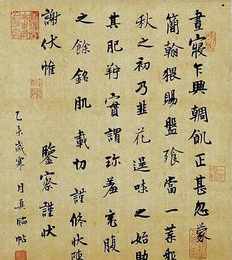 晝寢乍興輖飢正甚忽蒙
簡翰猥賜盤飧當一葉報
秋之初乃韭花逞味之始助
其肥羜實謂珍羞充腹
之餘銘肌載切謹修狀陳
謝伏惟鑒察謹狀
乙未歲寒月真臨帖